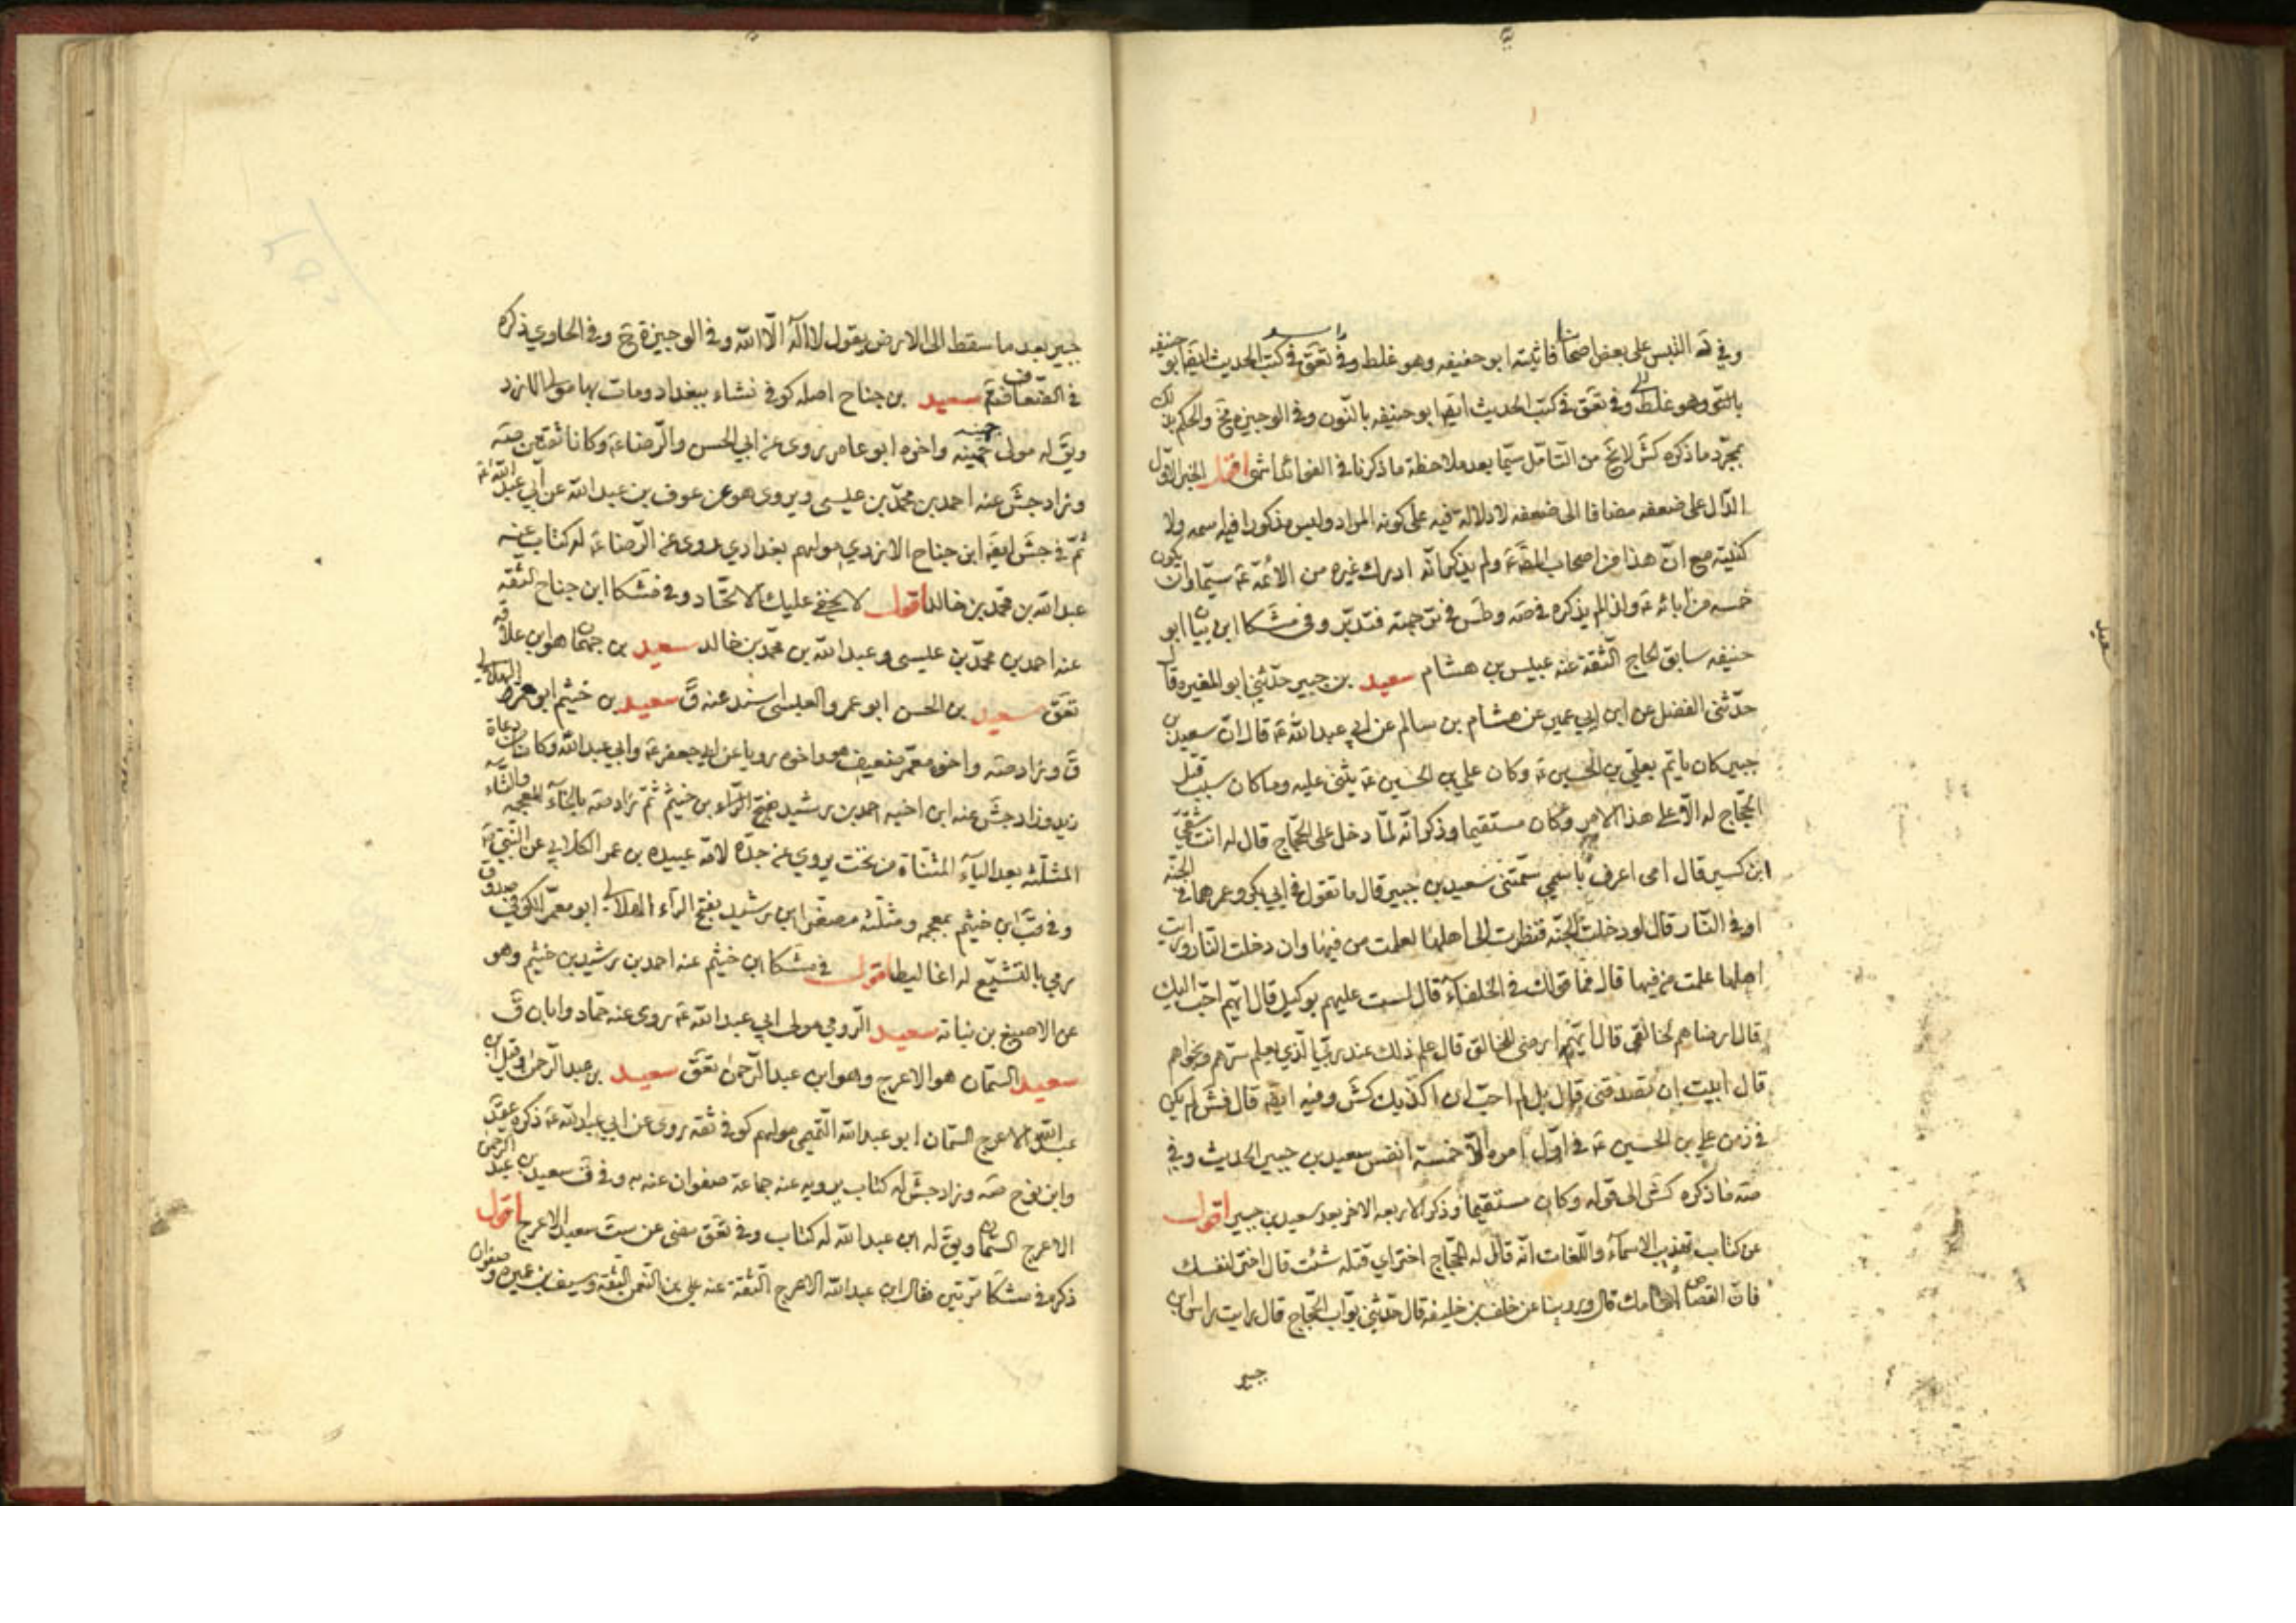 وفي ضه التبس على بعض اصحابنا فاثبته ابو حفيفه وهو غلط وفي تعق في كتب الحديث ايضا ابو حنيفه
وهو غلط وفي تعق في كتب الحديث ايضا ابو حنيفه بالنون وفي الوجيزة والحكم بذلك
بمجرد ما ذكره كش لا يخ من التامل سيما بعد ملاحظة ما ذكرنا في الفوائد انتهى اقول الخبر الاول
الدال على ضعفه مضافا الى ضعفه لا دلالة فيه على كونه المراد وليس مذكورا فيه اسمه ولا
كنيته مع ان هذا من اصحاب ولم يذكر انه ادرك غيره من الائمة ع سيما وان يكون
خمسه من ابائه ع ولذا لم يذكره في صه وطس في ترجمته فتدبر وفي مشكا ابن بيان ابو
حنيفه سابق الحاج الثقة عنه عبيس بن هشام سعيد بن جبير حدثني ابو المغيره قال
حدثني الفضل عن ابن ابي عمير عن هشام بن سالم عن ابي عبد الله ع قال ان سعيد بن
جبير كان ياتم بعلي بن الحسين ع وكان علي بن الحسين ع يثني عليه وما كان سبب قتل
الحجاج له الا على هذا الامر وكان مستقيما وذكر انه لما دخل على الحجاج قال له انت شقي
ابن كسير قال امي اعرف باسمي سمتني سعيد بن جبير قال ما تقول في ابي بكر وعمر هما في الجنة
او في النار قال لو دخلت الجنه فنظرت الى اهلها لعلمت من فيها وان دخلت النار ورايت
اهلها علمت من فيها قال فما قولك في الخلفاء قال لست عليهم بوكيل قال ايهم احب اليك
قال ارضاهم لخالقي قال ايهم ارضى للخالق قال علم ذلك عند ربي الذي يعلم سرهم ونجواهم
قال ابيت ان تصدقني قال بل لم احب ان اكذبك كش وفيه ايضا قال فش لم يكن
في زمن علي بن الحسين ع في اول امره الا خمسة انفس سعيد بن جبير الحديث وفي
صه ما ذكره كش الى قوله وكان مستقيما وذكر الاربعه الاخر بعد سعيد بن جبير اقول
عن كتاب تهذيب الاسماء واللغات انه قال له الحجاج اختر اي قتله شئت قال اختر لنفسك
فان القصاص امامك قال وروينا عن خلف بن خليفه قال حدثني بواب الحجاج قال رايت راس ابن
جبير
جبير بعد ما سقط الى الارض يقول لا اله الا الله وفي الوجيزة ح وفي الحاوي ذكره
في الضعاف فتم سعيد بن جناح اصله كوفي نشاء ببغداد ومات بها مولى الازد
ويق له مولى جهينه واخوه ابو عامر روى عن ابي الحسن والرضا ع وكانا ثقتين صه
وزاد جش عنه احمد بن محمد بن عيسى ويروي هو عن عوف بن عبد الله عن ابي عبد الله ع
ثم في جش ايضا ابن جناح الازدي مولاهم بغدادي روى عن الرضا ع له كتاب عنه
عبد الله بن محمد بن خالد اقول لا يخفى عليك الاتحاد وفي مشكا ابن جناح الثقه
عنه احمد بن محمد بن عيسى وعبد الله بن محمد بن خالد سعيد بن جهمان هو ابن علاقه
تعق سعيد بن الحسن ابو عمرو العبسي اسند عنه ق سعيد بن خثيم ابو معمر الهلالي
ق وزاد صه واخوه معمر ضعيف هو واخوه رويا عن ابي جعفر ع وابي عبد الله وكانا من دعاة
زيد وزاد جش عنه ابن اخيه احمد بن رشيد بفتح الراء بن خثيم ثم زاد صه بالخاء المعجمه والثاء
المثلثه بعد الياء المثناة من تحت يروي عن جده لامه عبيده بن عمر الكلابي عن النبي ص
وفي قب ابن خثيم بمعجمه ومثلثه مصغرا ابن رشيد بفتح الراء الهلالي ابو معمر الكوفي صدوق
رمي بالتشيع له اغاليط اقول في مشكا ابن خثيم عنه احمد بن رشيد بن خثيم وهو
عن الاصبغ بن نباته سعيد الرومي مولى ابي عبد الله ع روى عنه حماد وابان ق
سعيد السمان هو الاعرج وهو ابن عبد الرحمن تعق سعيد بن عبد الرحمن وقيل ابن
عبد الله الاعرج السمان ابو عبد الله التميمي مولاهم كوفي ثقه روى عن ابي عبد الله ع ذكره عقد
وابن نوح صه وزاد جش له كتاب يرويه عنه جماعة صفوان عنه به وفي ق سعيد بن عبد الرحمن
الاعرج السمان ويق له ابن عبد الله له كتاب وفي تعق مضى عن ست سعيد الاعرج اقول
ذكره في مشكا مرتين فقال ابن عبد الله الاعرج الثقة عنه علي بن النعمن الثقه وسيف بن عميره وصفوان